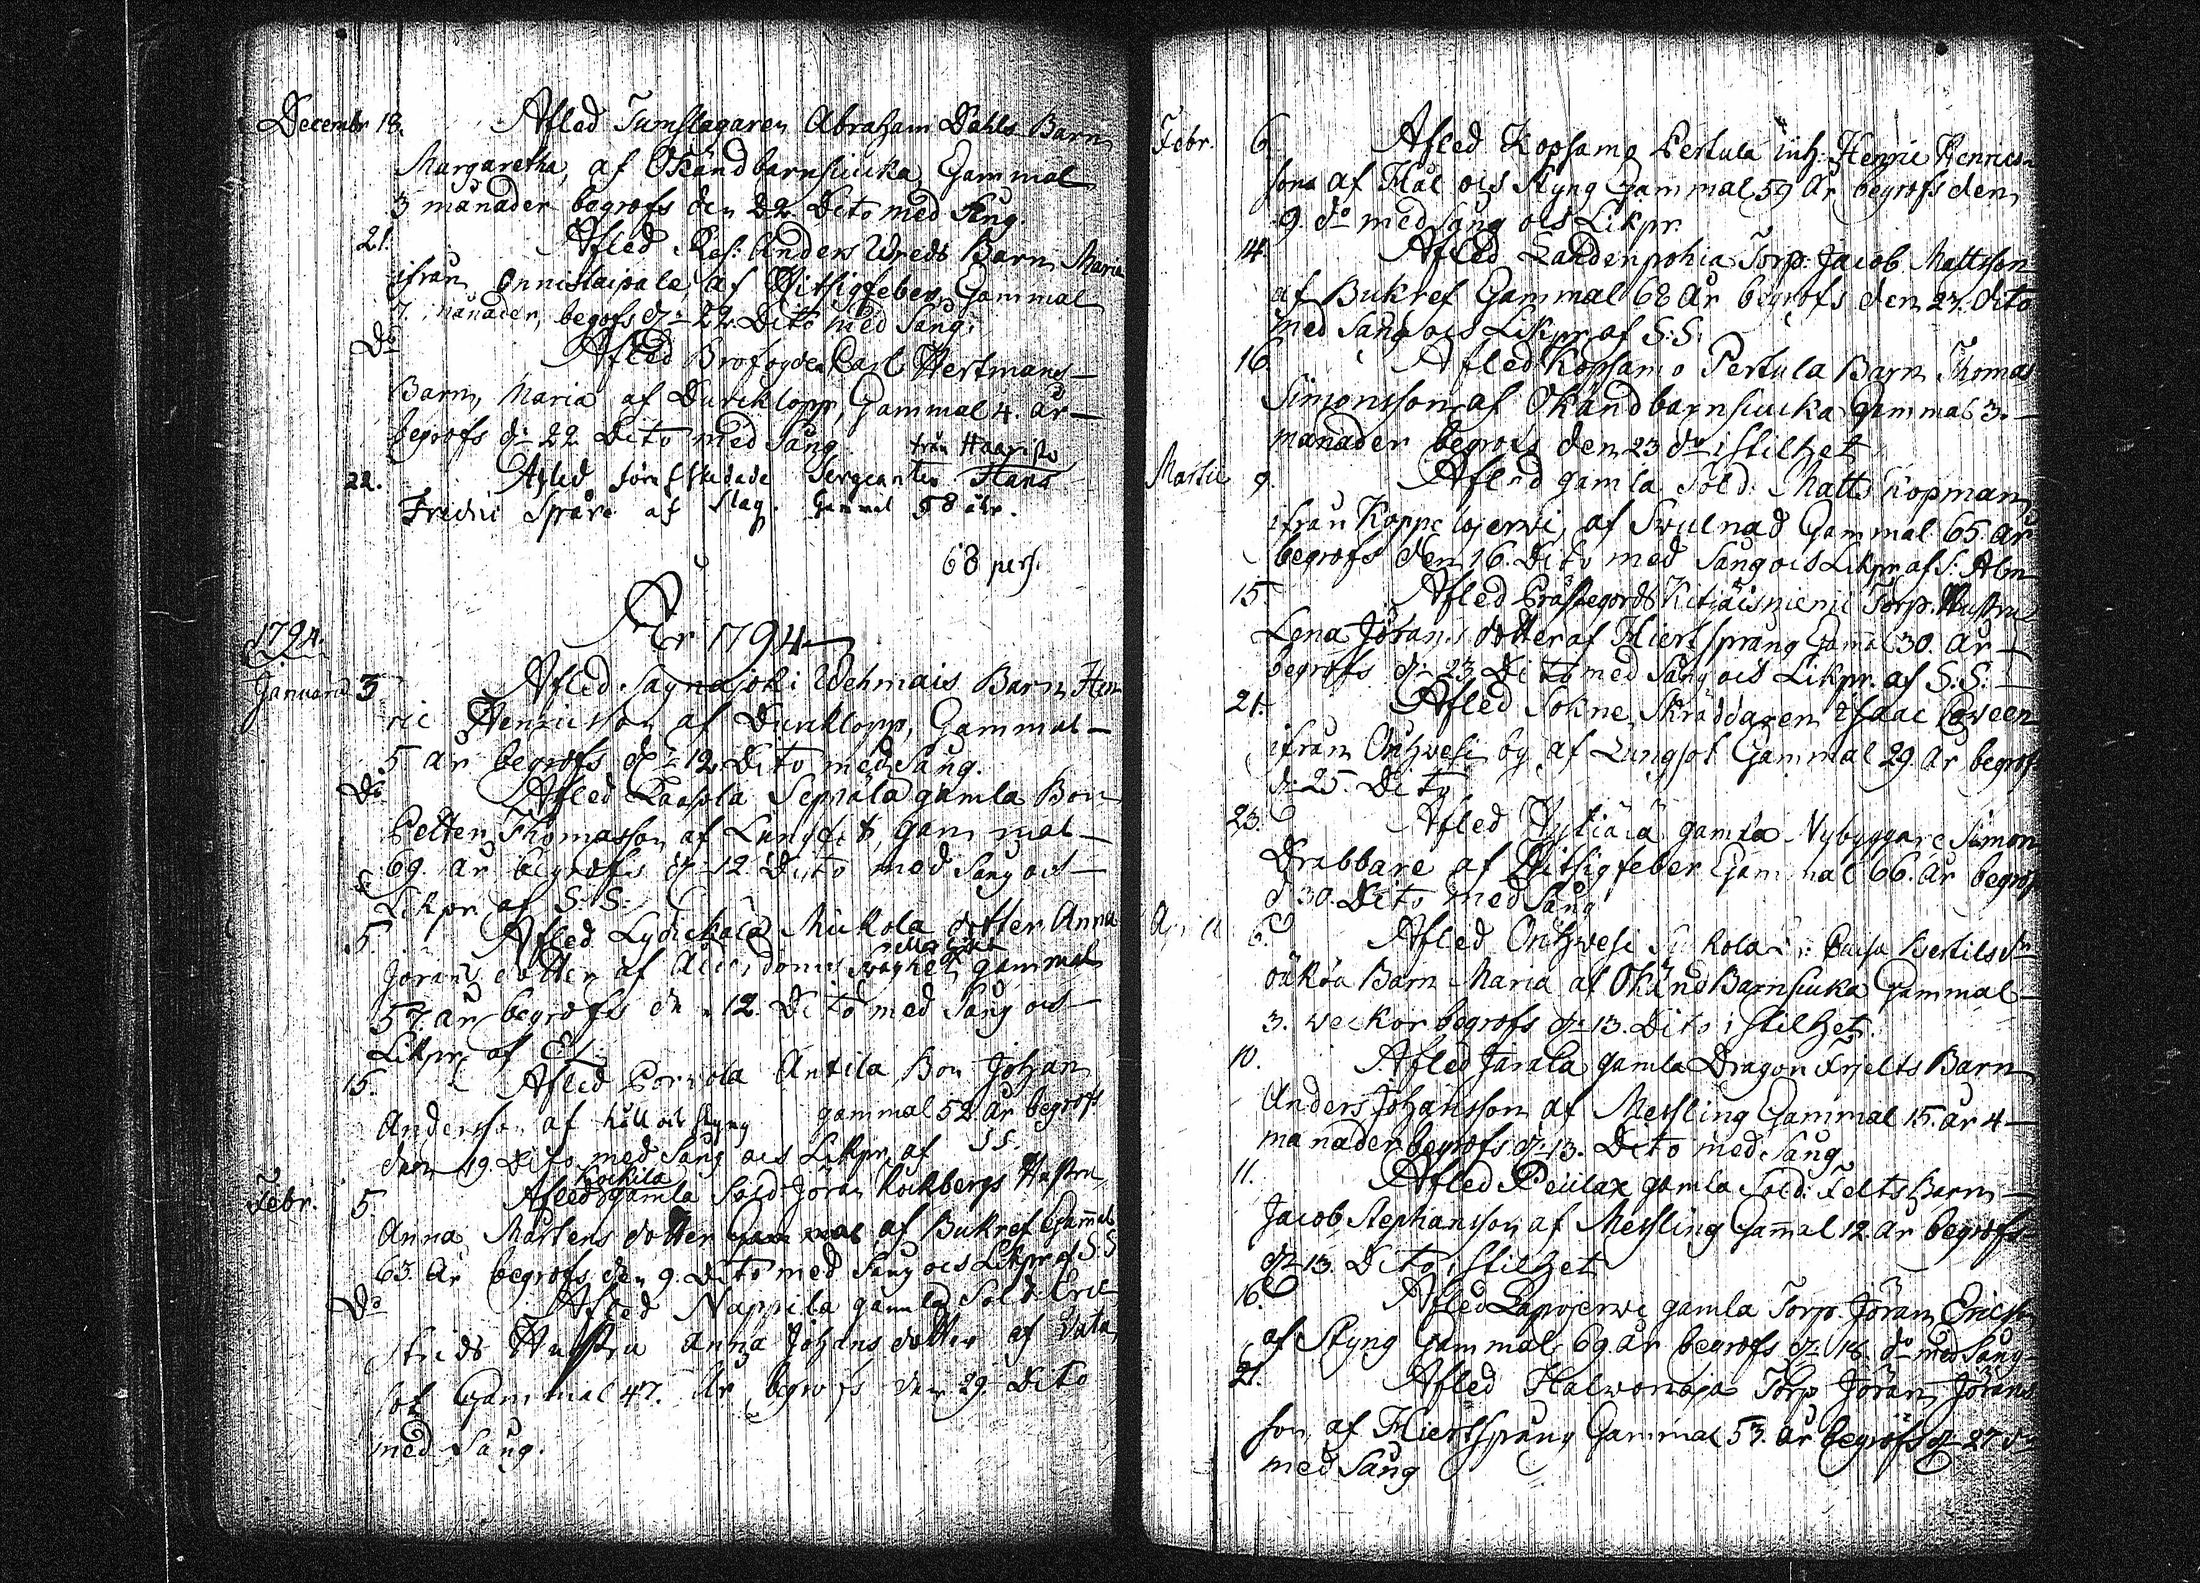 Decembr 18. Afled Tumslagaren Abraham Dahls Barn
Margaretha, af Okänd barnsiucka, Gammal
3 månader begrofs den 22 Dito med Sång.
21. Afled Anders Wreds Barn Maria
ifrån Onnistaipale, af Hitsigfeber Gammal
7. månader, begofs d: 22 Dito med Sång.
Do Afled Brofogden Carl Hertmans
Barn, Maria af Durcklopp, Gammal 4. år
begrofs d: 22 Dito med Sång
från Haapisto
22. Afled Sergeanten Hans
Fredric Spåre af Slag. Gammal 58 åhr.
68 pers.
År 1794
1794.
Januarii 3 Afled Sapnajoki Wehmais Barn Hen
ric Henricsson af Durcklopp, Gammal
5 år begrofs d: 12 Dito med Sång.
Do Afled Kaasola Seppälä gamla Bon
Petter Thomasson af Lungsot, Gammal
69. år begrofs d: 12. Dito med Sång och
Likpr. af S:S:
5. Afled Mickola dotter Anna
Jörans dotter af Ålderdoms Swaghet gammal
57. år begrofs den 12. Dito med Sång och
Likpr. af
15. Afled Antila Bon Johan
Andersson af håll och styng gammal 52 år begrofs
den 19. Dito med Sång och Likpr. af S S.
Kockila
Febr. 5. Afled gamla Sold. Jöran Kockbergs Hustru
Anna Mårtens dotter Gammal af Bukref Gamal
63. år begrofs den 9. Dito med Sång och Likpr af S S
Do Afled Nappila gamla Sold. Eric
Strids Hustru Anna Johans dotter af Wata
sot Gammal 47. år begrofs den 29. Dito
med Sång.
Febr. 6. Afled Kopsamo Pertula inh: Henric Henrics
sons af Hål och Styng Gammal 59 år begrofs den
9. do med Sång och Likpr.
14. Afled Lahdenpohia Torp. Jacob Mattsson
af Bukref Gammal 68 år begrofs den 27. dito
med Sång och Likpr af S:S:
16 Afled Kopsamo Pertula Barn Thomas
Simonsson af Okänd barnsiucka Gammal 3.
månader begrofs den 23 do i stilhet
Martii 9. Afled gamla Sold: Matts Kopman
ifrån af Swulnad Gammal 65. år
begrofs den 16. Dito med Sång och Likpr af S:
15. Afled Prästegords Torp. Hustru
Lena Jörans dotter af Hiertsprång Gamal 30. år
begrofs d: 23 Dito med Sång och Likpr. af S.S.
21. Afled Sokne Skräddaren Isaac
ifrån Onhwesi by af Lungsot Gammal 29 år begrofs
d: 25. Dito
23. Afled gamla Nybyggare Simon
Drabbare af Hitsigfeber Gammal 66. år begrofs
d 30. Dito med Sång
April 6. Afled Onhwesi Bertilsdr
oäkta Barn Maria af Okänd Barnsiucka Gammal
3. weckor begrofs d: 13. Dito i stilhet
10. Afled Järälä gamla Dragon Barn
Anders Johansson af Messling Gammal 15. år 4
månader begrofs d: 13. Dito med Sång
11. Afled gamla Sold. Felts Barn
Jacob Stephansson af Messling Gamal 12. år begrofs
d: 13. Dito i stilhet
16. Afled Lapojerwi gamla Torp. Jöran Ericsson
af Styng Gammal 69. år begrofs d: 18 do med Sång
21. Afled Torp. Jöran Jörans
son af Hiertsprång Gammal 53. år begrofs d: 27 do
med Sång